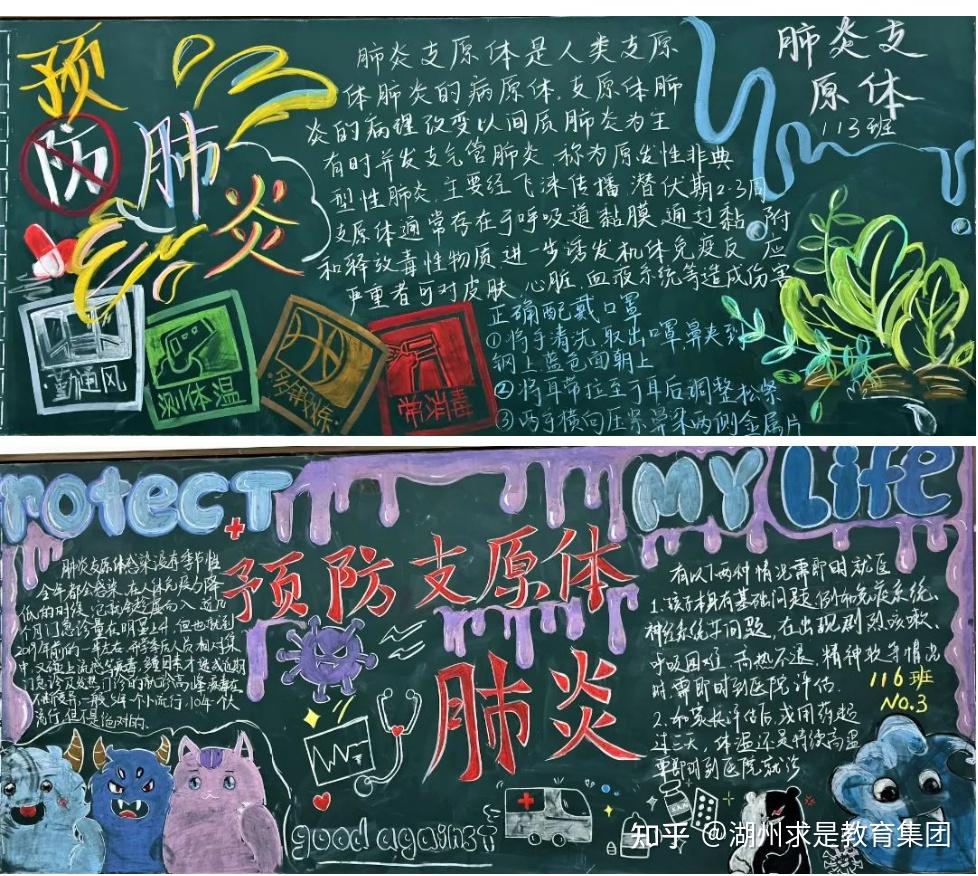 预
防肺
炎
肺炎支原体是人类支原
体肺炎的病原体.支原体肺
炎的病理改变以间质肺炎为主
有时并发支气管肺炎.称为原发性非典
型性肺炎.主要经飞沫传播.潜伏期2-3周
支原体通常存在于呼吸道黏膜.通过黏附
和释放毒性物质.进一步诱发机体免疫反应
严重者可对皮肤、心脏、血液系统等造成伤害
正确配戴口罩
①将手清洗取出口罩鼻夹到
钢上蓝色面朝上
②将耳带拉至于耳后调整松紧
③两手横向压紧鼻梁两侧金属片
肺炎支
原体
113班
勤通风
测体温
多锻炼
常消毒
rotect
MY Life
预防支原体
肺炎
肺炎支原体感染没有季节性
全年都会感染.在人体免疫力降
低的时候,它就会趁虚而入
个月门急诊量在明显上升,但也就到
2019年前的
不断复杂.一般3-4年个小流行,10年个大
流行,但不是绝对的.
有以下两种情况需即时就医
1.孩子本身有基础问题,例如免疫系统、
神经系统等问题,在出现剧烈咳嗽、
呼吸困难、高热不退、精神
等情况
时需即时到医院评估.
2.如家长评估后,或用药超
过三天,体温还是持续高温
要即时到医院就诊
116班
NO.3
good against
知乎 @湖州求是教育集团